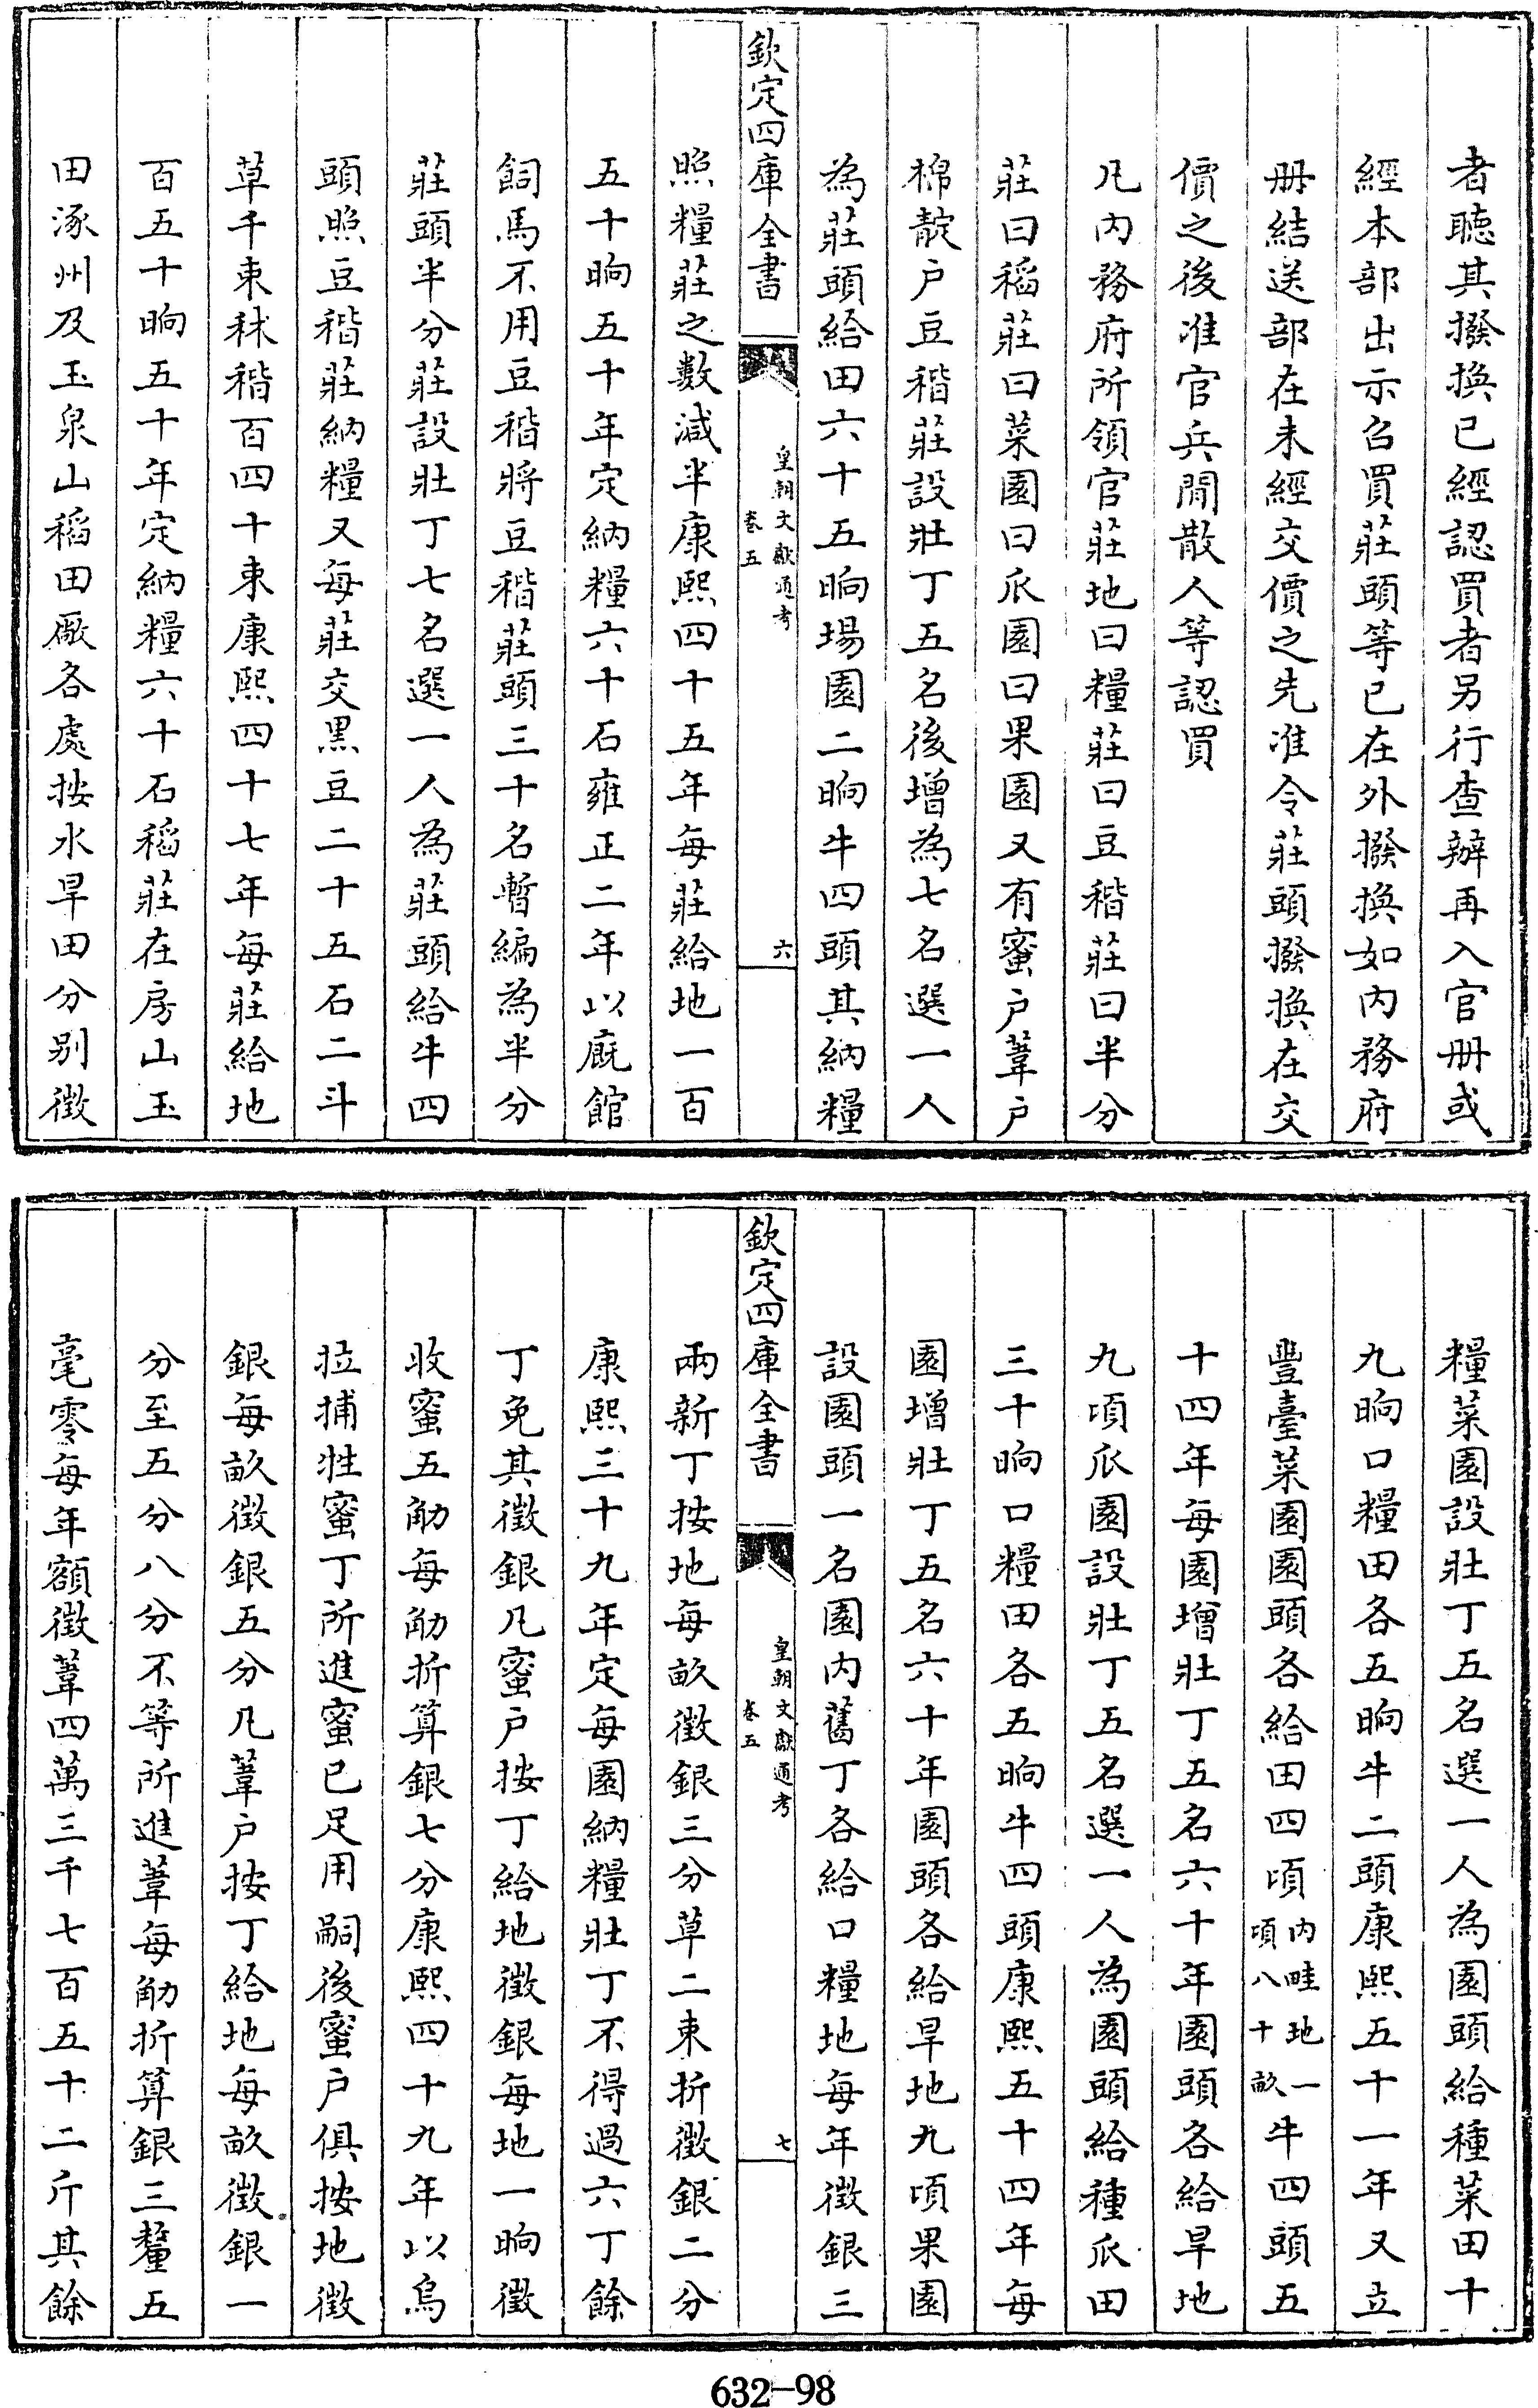 者聽其撥換已經認買者另行查辦再入官冊或
經本部出示召買莊頭等已在外撥換如内務府
冊結送部在未經交價之先准令莊頭撥換在交
價之後准官兵閒散人等認買
凡内務府所領官莊地曰糧莊曰豆稭莊曰半分
莊曰稻莊曰菜園曰瓜園曰果園又有蜜户葦户
棉靛户豆稭莊設壯丁五名後增為七名選一人
為莊頭給田六十五晌場園二晌牛四頭其納糧
欽定四庫全書
皇朝文獻通考
卷五
六
照糧莊之數減半康熙四十五年每莊給地一百
五十晌五十年定納糧六十石雍正二年以廐館
飼馬不用豆稭將豆稭莊頭三十名暫編為半分
莊頭半分莊設壯丁七名選一人為莊頭給牛四
頭照豆稭莊納糧又每莊交黑豆二十五石二斗
草千束秫稭百四十束康熙四十七年每莊給地
百五十晌五十年定納糧六十石稻莊在房山玉
田涿州及玉泉山稻田厰各處按水旱田分别徴
糧菜園設壯丁五名選一人為園頭給種菜田十
九晌口糧田各五晌牛二頭康熙五十一年又立
豐臺菜園園頭各給田四頃内畦地一頃八十畝牛四頭五
十四年每園增壯丁五名六十年園頭各給旱地
九頃瓜園設壯丁五名選一人為園頭給種瓜田
三十晌口糧田各五晌牛四頭康熙五十四年每
園增壯丁五名六十年園頭各給旱地九頃果園
設園頭一名園内舊丁各給口糧地每年徴銀三
欽定四庫全書
皇朝文獻通考
卷五
七
兩新丁按地每畝徴銀三分草二束折徴銀二分
康熙三十九年定每園納糧壯丁不得過六丁餘
丁免其徴銀凡蜜户按丁給地徴銀每地一晌徴
收蜜五觔每觔折算銀七分康熙四十九年以烏
拉捕牲蜜丁所進蜜已足用嗣後蜜户俱按地徴
銀每畝徴銀五分凡葦户按丁給地每畝徴銀一
分至五分八分不等所進葦每觔折算銀三釐五
毫零每年額徴葦四萬三千七百五十二斤其餘
632-98